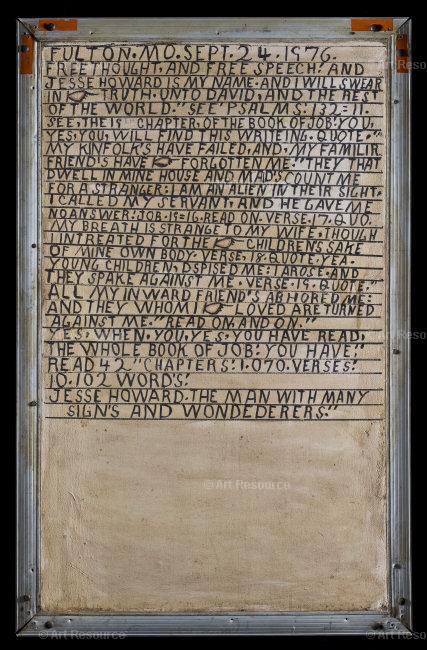 FULTON. MO. SEPT. 24. 1976.
FREE THOUGHT, AND FREE SPEECH: AND
JESSE HOWARD IS MY NAME: AND I WILL SWEAR
IN TRUTH. UNTO DAVID, AND THE REST
OF THE WORLD." SEE" PSALMS: 132=11.
SEE, THE 19 CHAPTER, OF THE BOOK OF JOB: YOU,
YES, YOU, WILL FIND THIS WRITEING. QUOTE."
MY KINFOLK'S HAVE FAILED, AND, MY FAMILIR
FRIEND'S HAVE FORGOTTEN ME: "THEY THAT
DWELL IN MINE HOUSE AND MAD'S COUNT ME
FOR A STRANGER: I AM AN ALIEN IN THEIR SIGHT.
I CALLED MY SERVANT, AND HE GAVE ME
NO ANSWER: JOB. 19=16. READ ON. VERSE. 17. QUO.
MY BREATH IS STRANGE TO MY WIFE, THOUGH
I INTREATED FOR THE CHILDREN'S SAKE
OF MINE OWN BODY. VERSE, 18. QUOTE, YEA.
YOUNG CHILDREN, DSPISED ME: I AROSE. AND
THEY SPAKE AGAINST ME. VERSE. 19. QUOTE."
ALL MY INWARD FRIEND'S ABHORED ME:
AND THEY WHOM I LOVED ARE TURNED
AGAINST ME. "READ ON, AND ON."
YES, WHEN, YOU, YES, YOU HAVE READ,
THE WHOLE BOOK OF JOB: YOU HAVE;"
READ 42" CHAPTERS: 1.070. VERSES:
10.102 WORDS:
JESSE HOWARD. THE MAN WITH MANY
SIGN'S AND WONDEDERERS."
© Art Resource
© Art Resource
© Art Resource